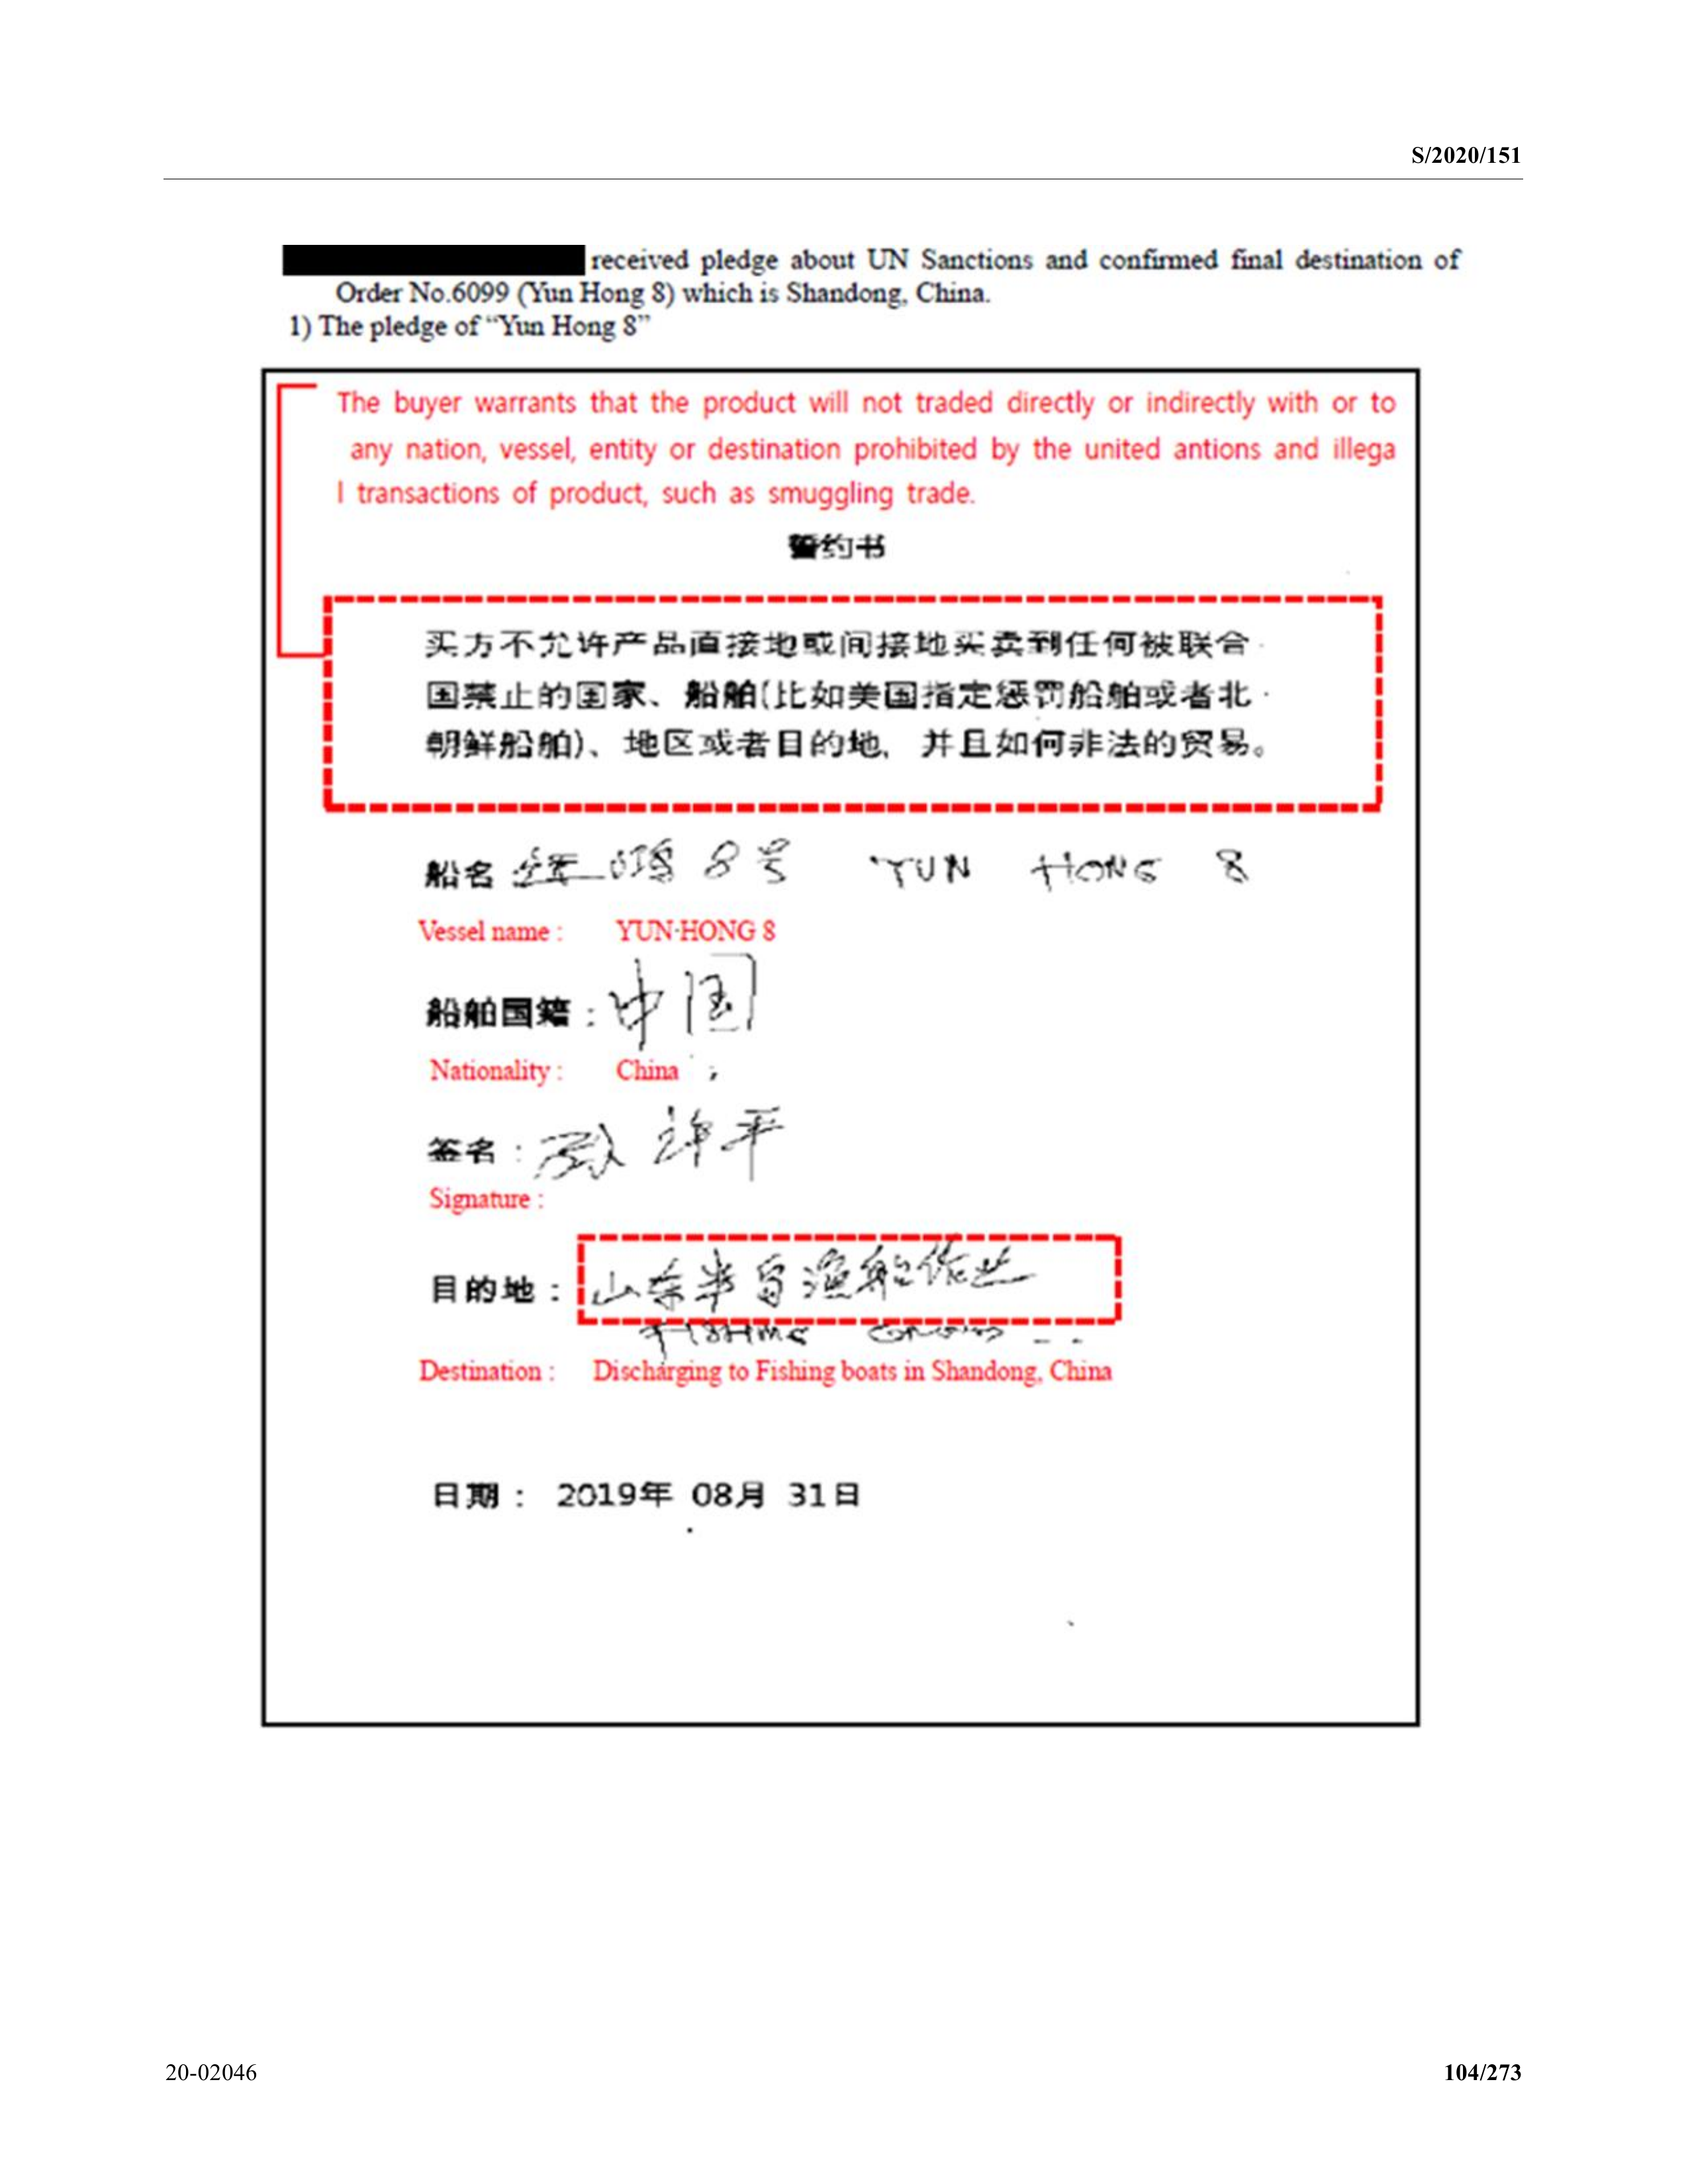 S/2020/151
received pledge about UN Sanctions and confirmed final destination of
Order No.6099 (Yun Hong 8) which is Shandong, China.
1) The pledge of “Yun Hong 8”
The buyer warrants that the product will not traded directly or indirectly with or to
any nation, vessel, entity or destination prohibited by the united antions and illega
l transactions of product, such as smuggling trade.
誓约书
买方不允许产品直接地或间接地买卖到任何被联合
国禁止的国家、船舶(比如美国指定惩罚船舶或者北
朝鲜船舶)、地区或者目的地, 并且如何非法的贸易。
船名 8号 YUN HONG 8
Vessel name : YUN HONG 8
船舶国籍 : 中国
Nationality : China
签名 : 孙 平
Signature :
目的地 : 山东半岛渔船作业
FISHING
Destination : Discharging to Fishing boats in Shandong, China
日期 : 2019年 08月 31日
20-02046
104/273